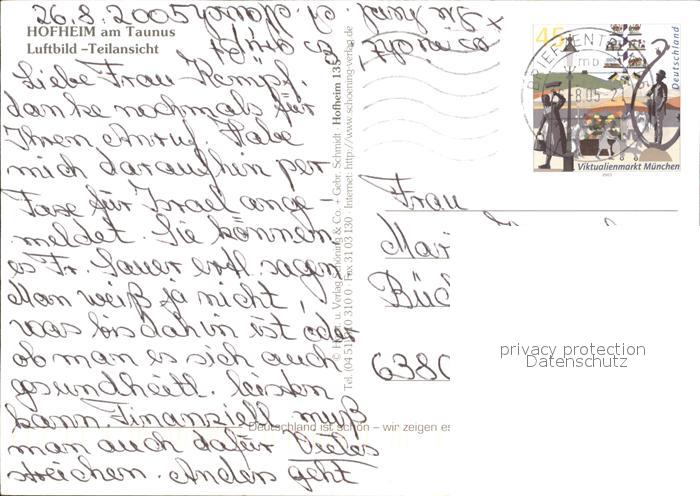 26.8.2005
HOFHEIM am Taunus
Luftbild –Teilansicht
Liebe Frau Kempf
danke nochmals für
Ihren Anruf. Habe
mich daraufhin per
Faxe für Israel ange-
meldet. Sie können
es Fr. Sauer evtl. sagen.
Man weiß ja nicht,
was bis dahin ist oder
ob man es sich auch
gesundheitl. leisten
kann. Finanziell muß
man auch dafür Vieles
streichen. Anders geht
© Hofheim 135
Schöning & Co. + Gebr. Schmidt
Tel. (04 51) 3 10 310 0 Fax 31 03 130 Internet: http://www.schoening-verlag.de
Deutschland ist schön – wir zeigen es
45
Deutschland
BRIEFZENTRUM
mb
8.05-21
Viktualienmarkt München
2003
Frau
Mar
Büd
6380
privacy protection
Datenschutz